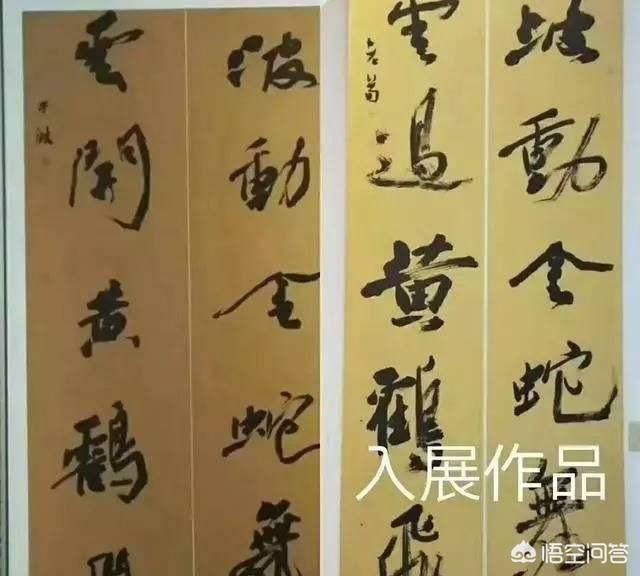 波動金蛇舞
雲過黄鶴飛
波動金蛇舞
雲開黄鶴
入展作品
悟空问答